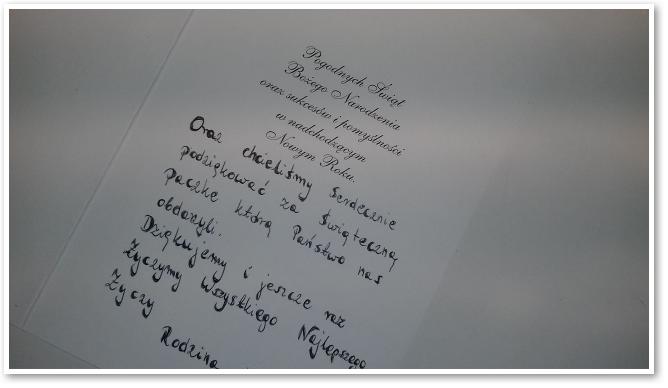 Pogodnych Świąt
Bożego Narodzenia
oraz sukcesów i pomyślności
w nadchodzącym
Nowym Roku.
Oraz chcieliśmy Serdecznie
podziękować za Świąteczną
paczkę którą Państwo nas
obdarzyli.
Dziękujemy i jeszcze raz
Życzymy Wszystkiego Najlepszego
Życzy
Rodzina